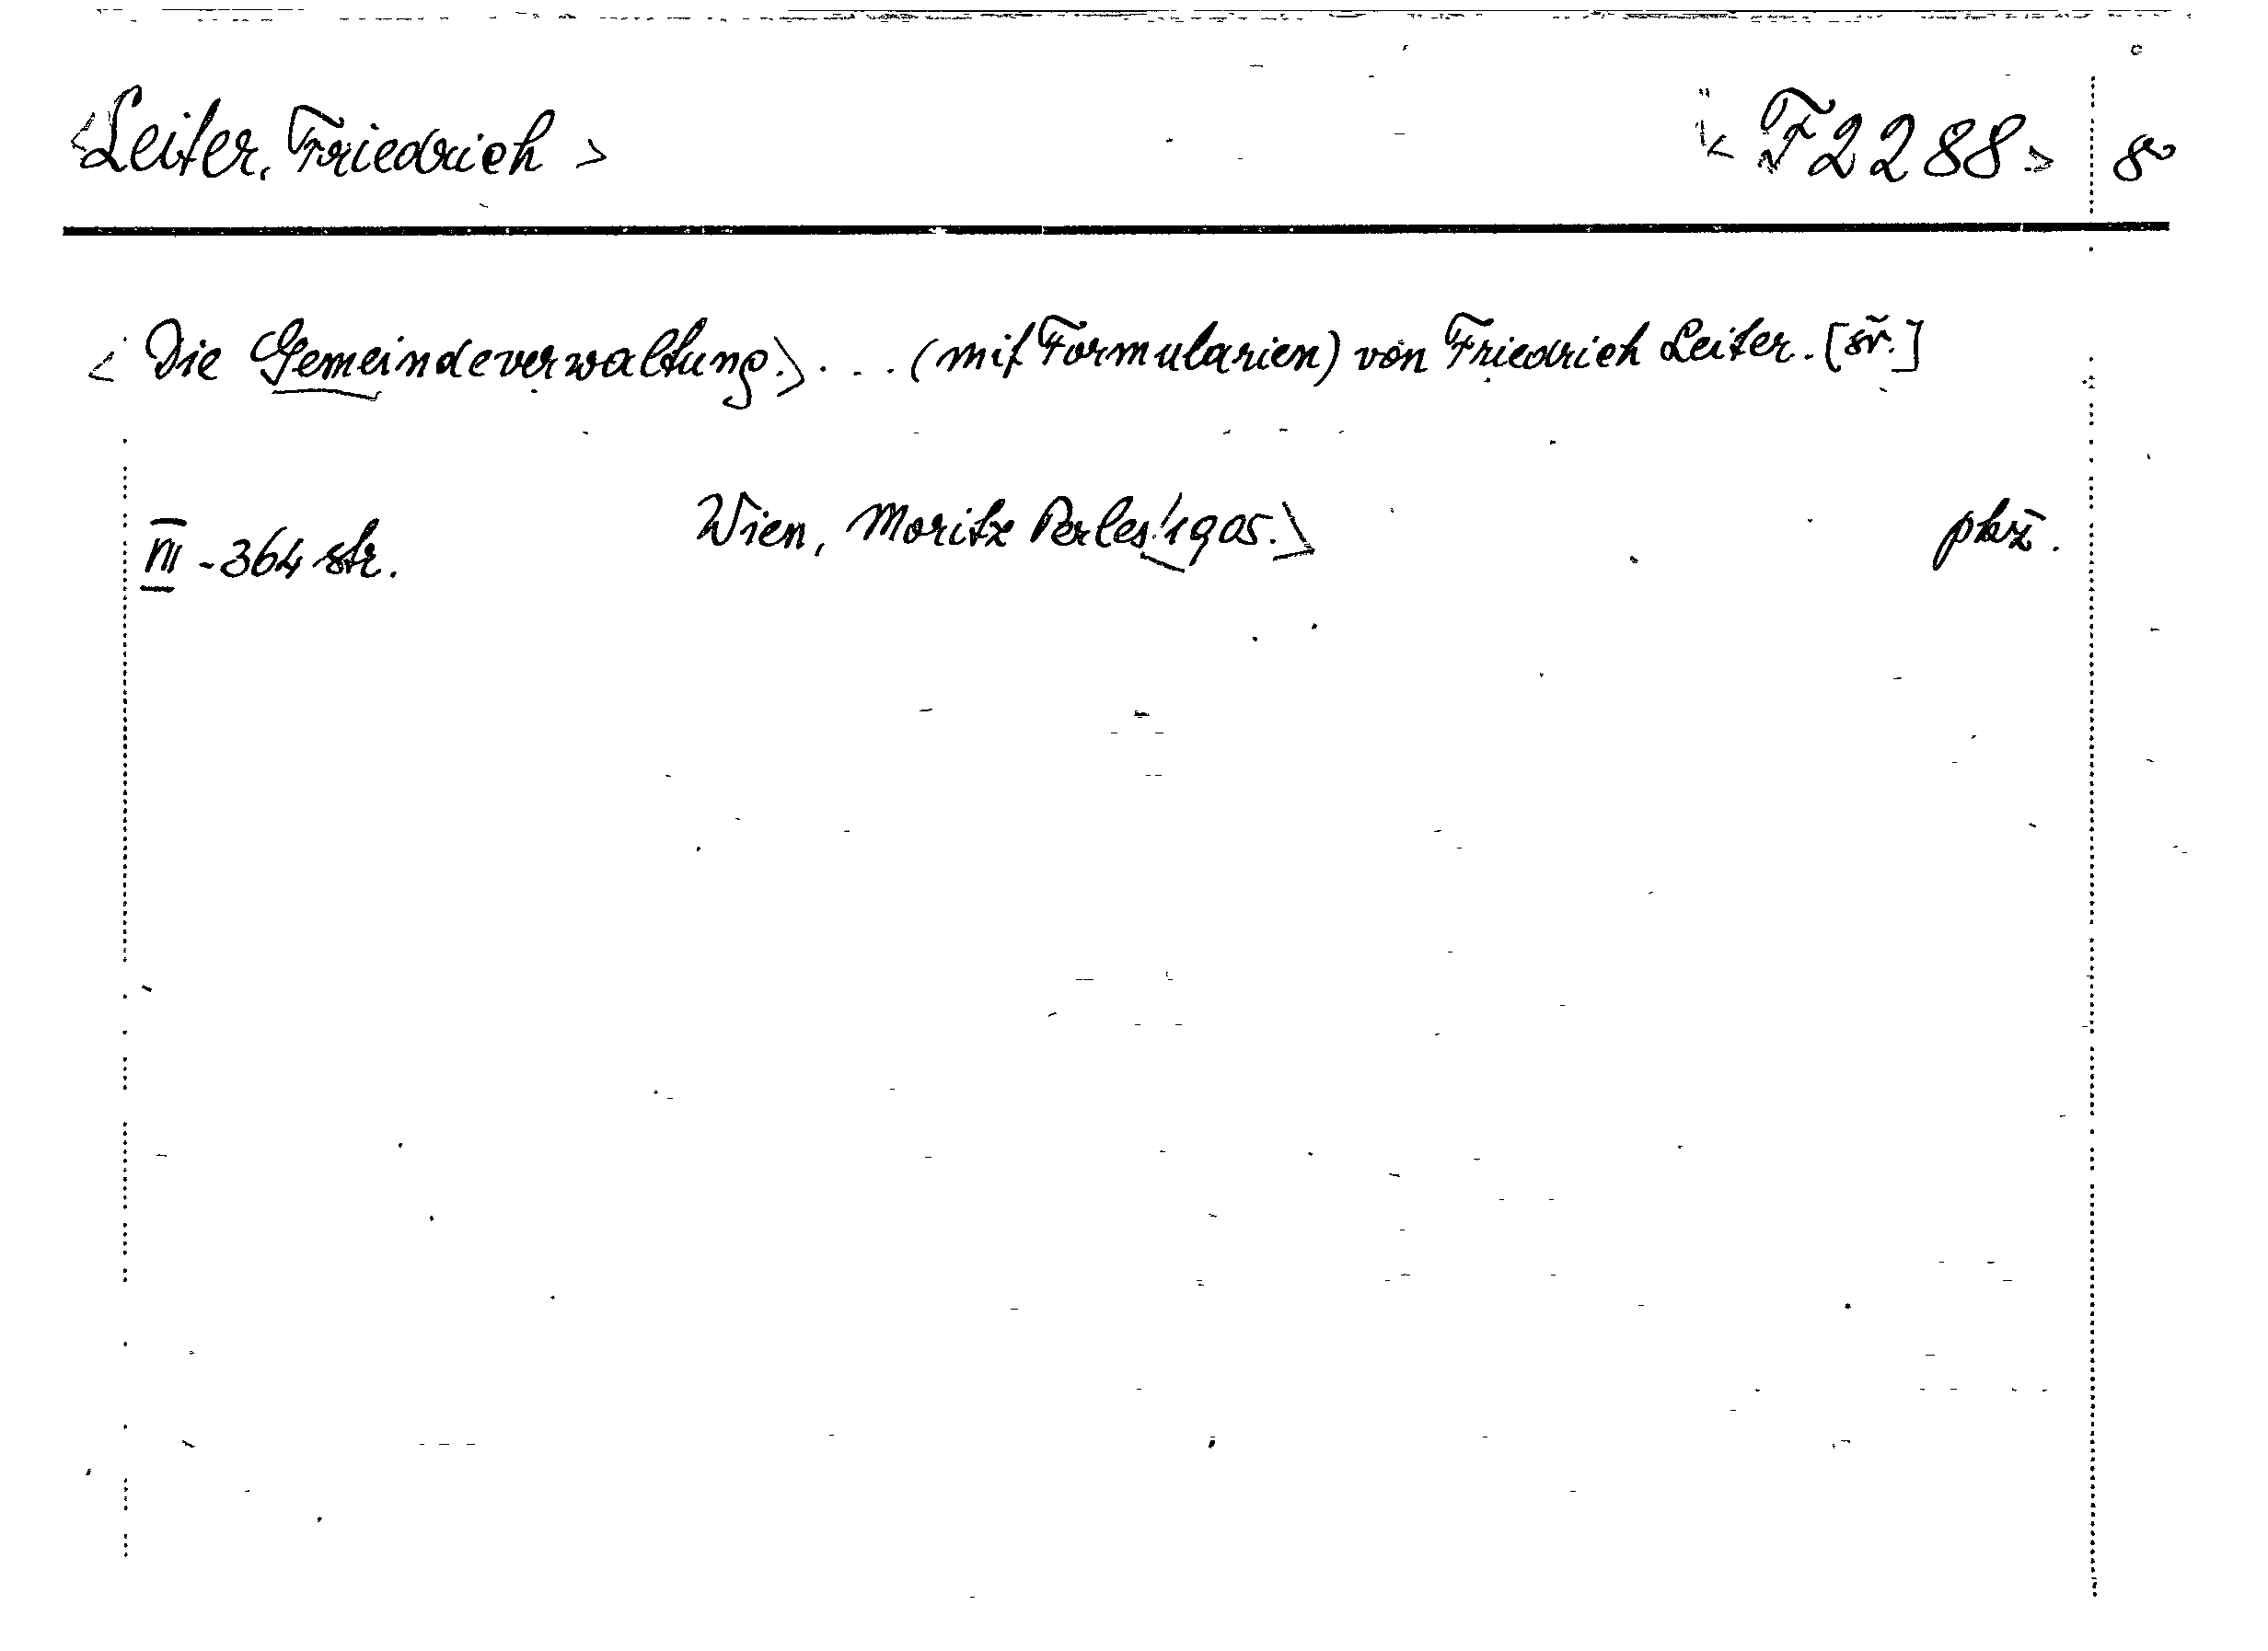 <Leiter, Friedrich> <F2288> 8°
<Die Gemeindeverwaltung.> ... (mit Formularien) von Friedrich Leiter. [šv.]
III - 364 str. Wien, Moritz Perles <1905.>